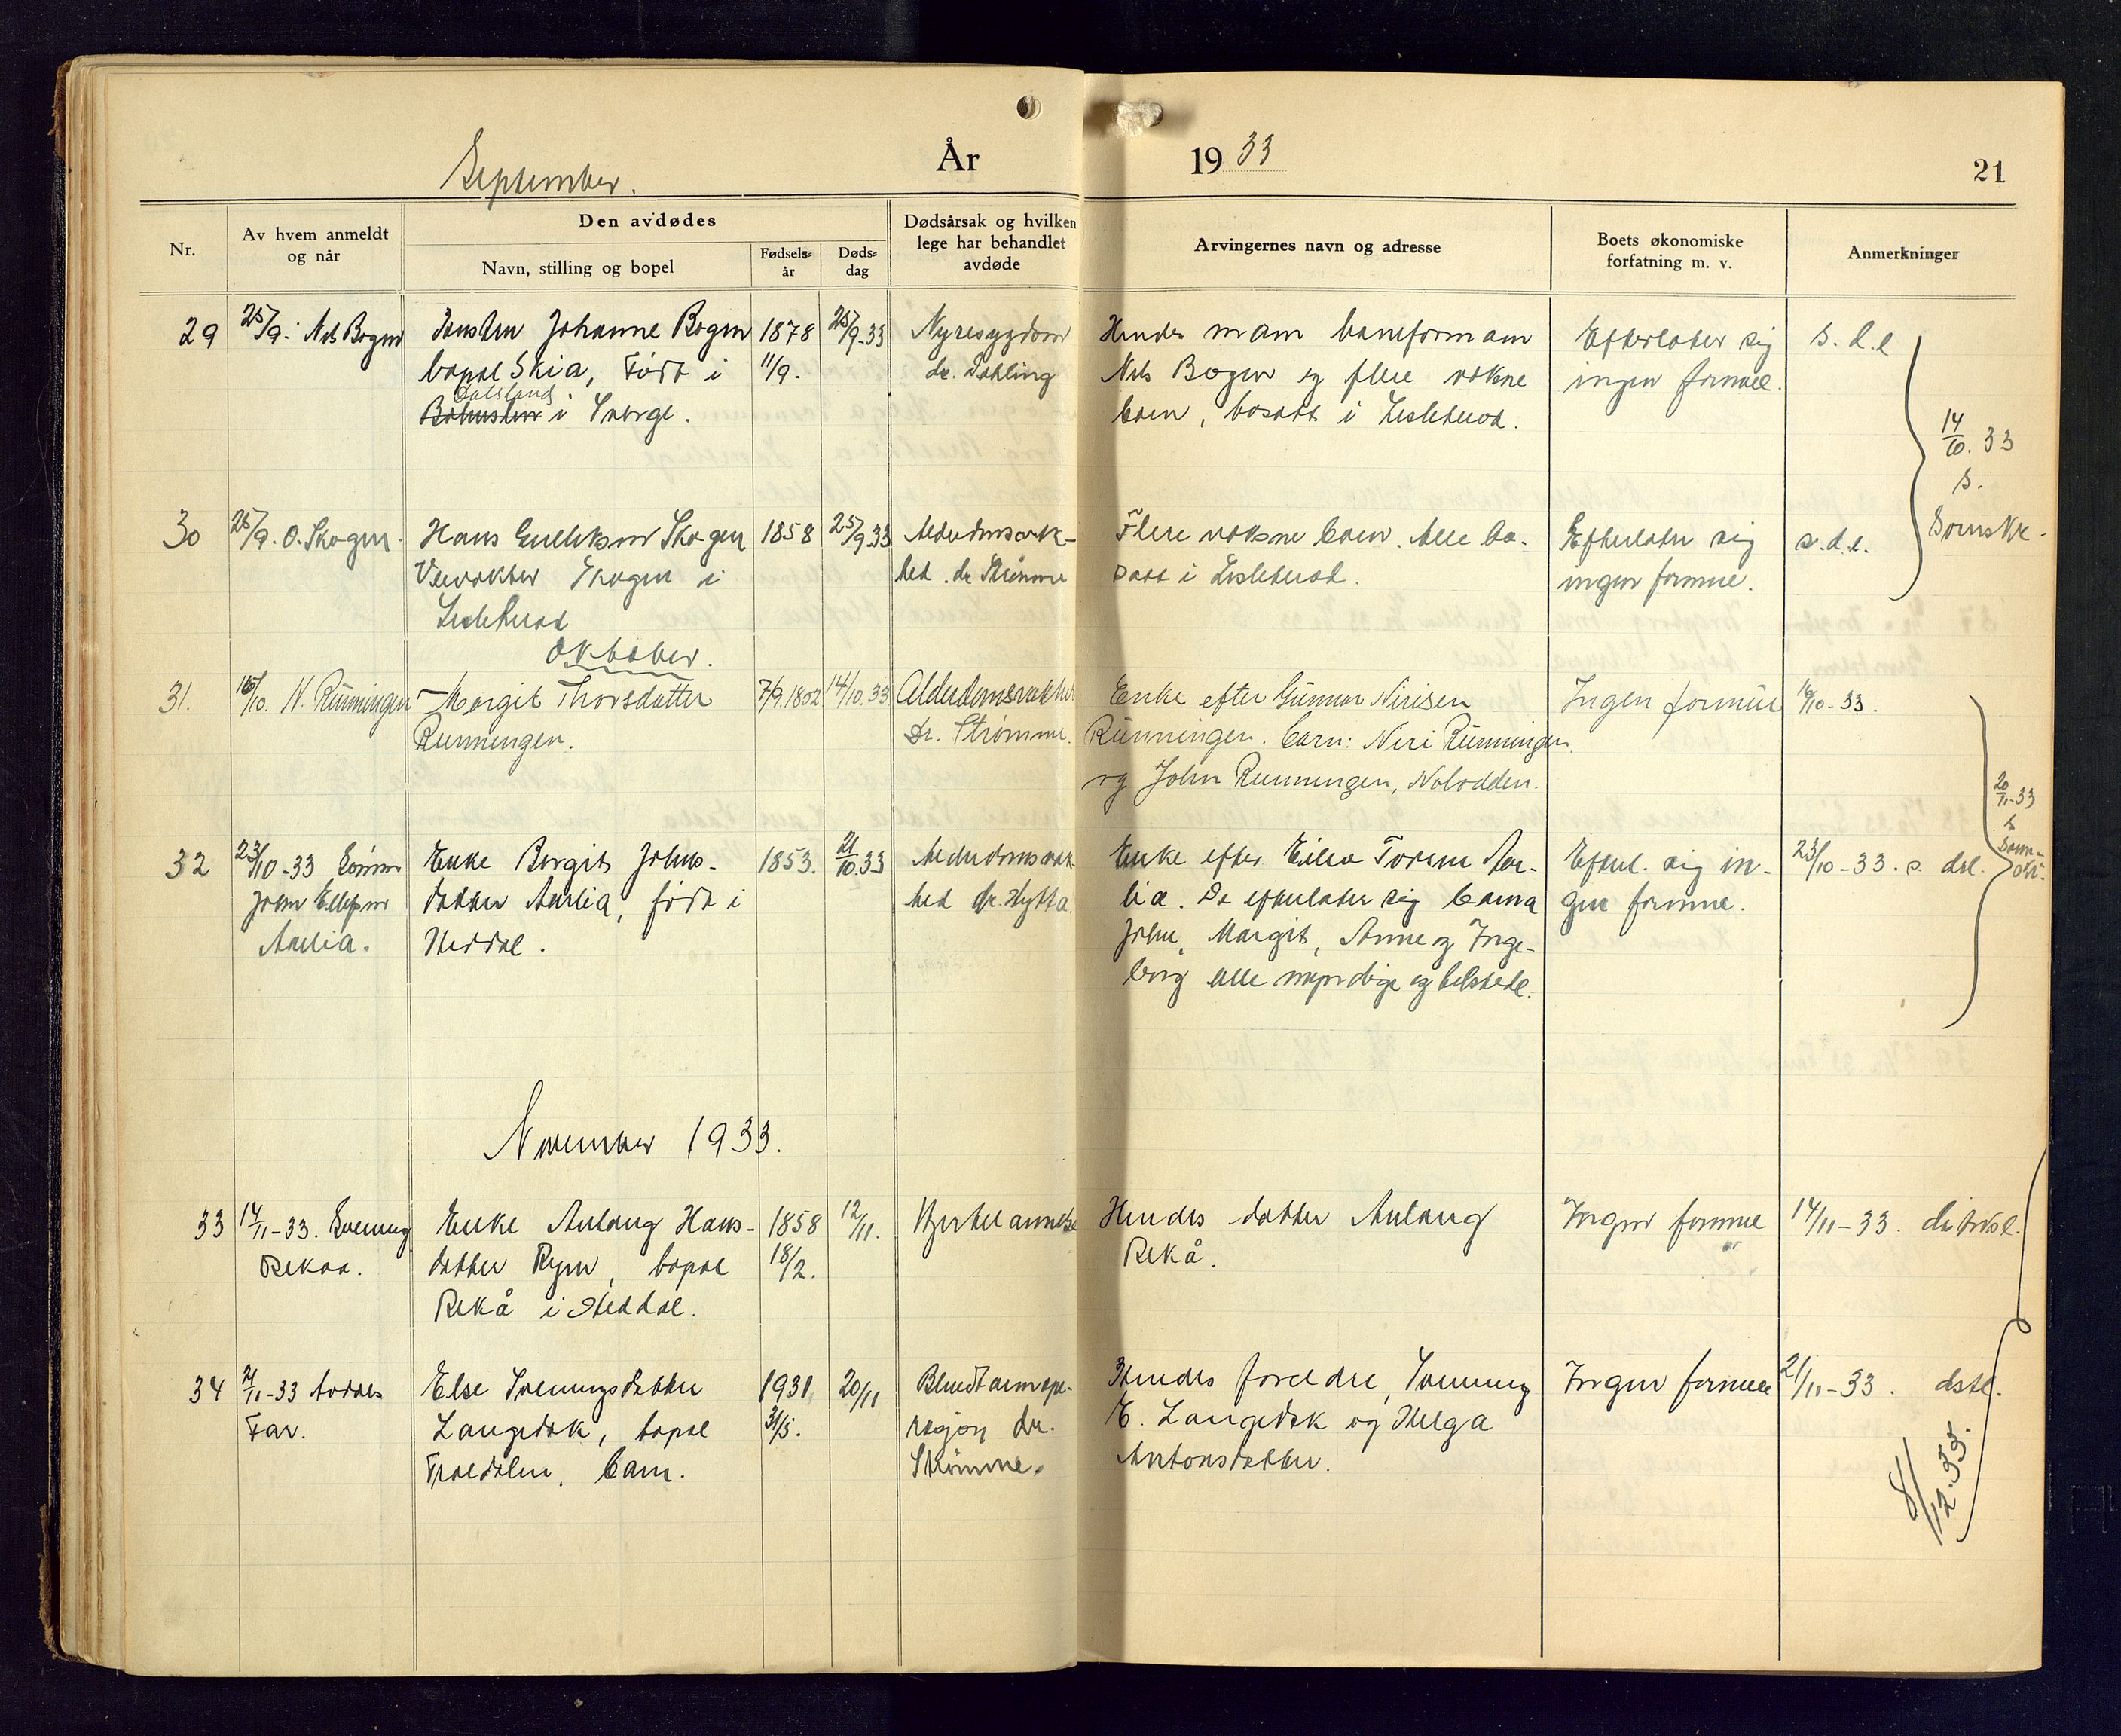 September.
År
19 33
21
Nr.
Av hvem anmeldt
og når
Den avdødes
Navn, stilling og bopel
Fødsels-
år
Døds-
dag
Dødsårsak og hvilken
lege har behandlet
avdøde
Arvingernes navn og adresse
Boets økonomiske
forfatning m. v.
Anmerkninger
29
25/9. Nels Bogen
Johanne Bogen
bopel Skia, Født i
Dalsland
Bohuslen i Sverge.
1878
11/9.
25/9-33
Nyresygdom
dr. Dahling
Hendes mann
Nels Bogen og flere vokne
barn, bosatt i Lisleherad.
Efterlater sig
ingen formue.
s. d. e
14/10. 33
s.
30
26/9. O. Skogen.
Hans Gulliksen Skogen
Skogen i
Lisleherad
1858
25/9 33
Alderdomssvak-
het. dr Strømme
Flere voksne barn. Alle bo-
satt i Lisleherad.
Efterlater sig
ingen formue.
s. d. e.
Oktober.
31.
16/10. N. Rünningen
Margit Thorsdatter
Runningen.
7/9.1852
14/10.33
Alderdomssvakhet
Dr. Strømme.
Enke efter Gunnar Nirisen
Rünningen. barn: Niri Rünningen
og John Runningen, Notodden.
Ingen formue
16/10-33.
20/11-33
s
32
23/10-33 Sønnen
John Ellefsen
Aarlia.
Enke Bergit Johns-
datter Aarlia, født i
Heddal.
1853.
21/10.33
Alderdomssvak-
het dr. Hytta.
Enke efter Eilev Tovsen Aar-
lia. De efterlater sig barna
John, Margit, Anne og Inge-
borg alle myndige og
Efterl. sig in-
gen formue.
23/10-33. s. del.
November 1933.
33
14/11-33. Svenung
Rekaa.
Enke Aulaug Hans-
datter Rygen, bopæl
Rekå i Heddal.
1858
18/2.
12/11.
Hjertelammelse
Hendes datter Aulaug
Rekå.
Ingen formue
14/11-33.
34
21/11-33
Far.
Else Svenungsdatter
Langedok, bopæl
Barn.
1931
31/5.
20/11
Blindtarmope-
rasjon dr.
Strømme.
Hendes foreldre, Svenung
E. Langedok og Helga
Antonsdatter.
Ingen formue
21/11-33.
8/12.33.